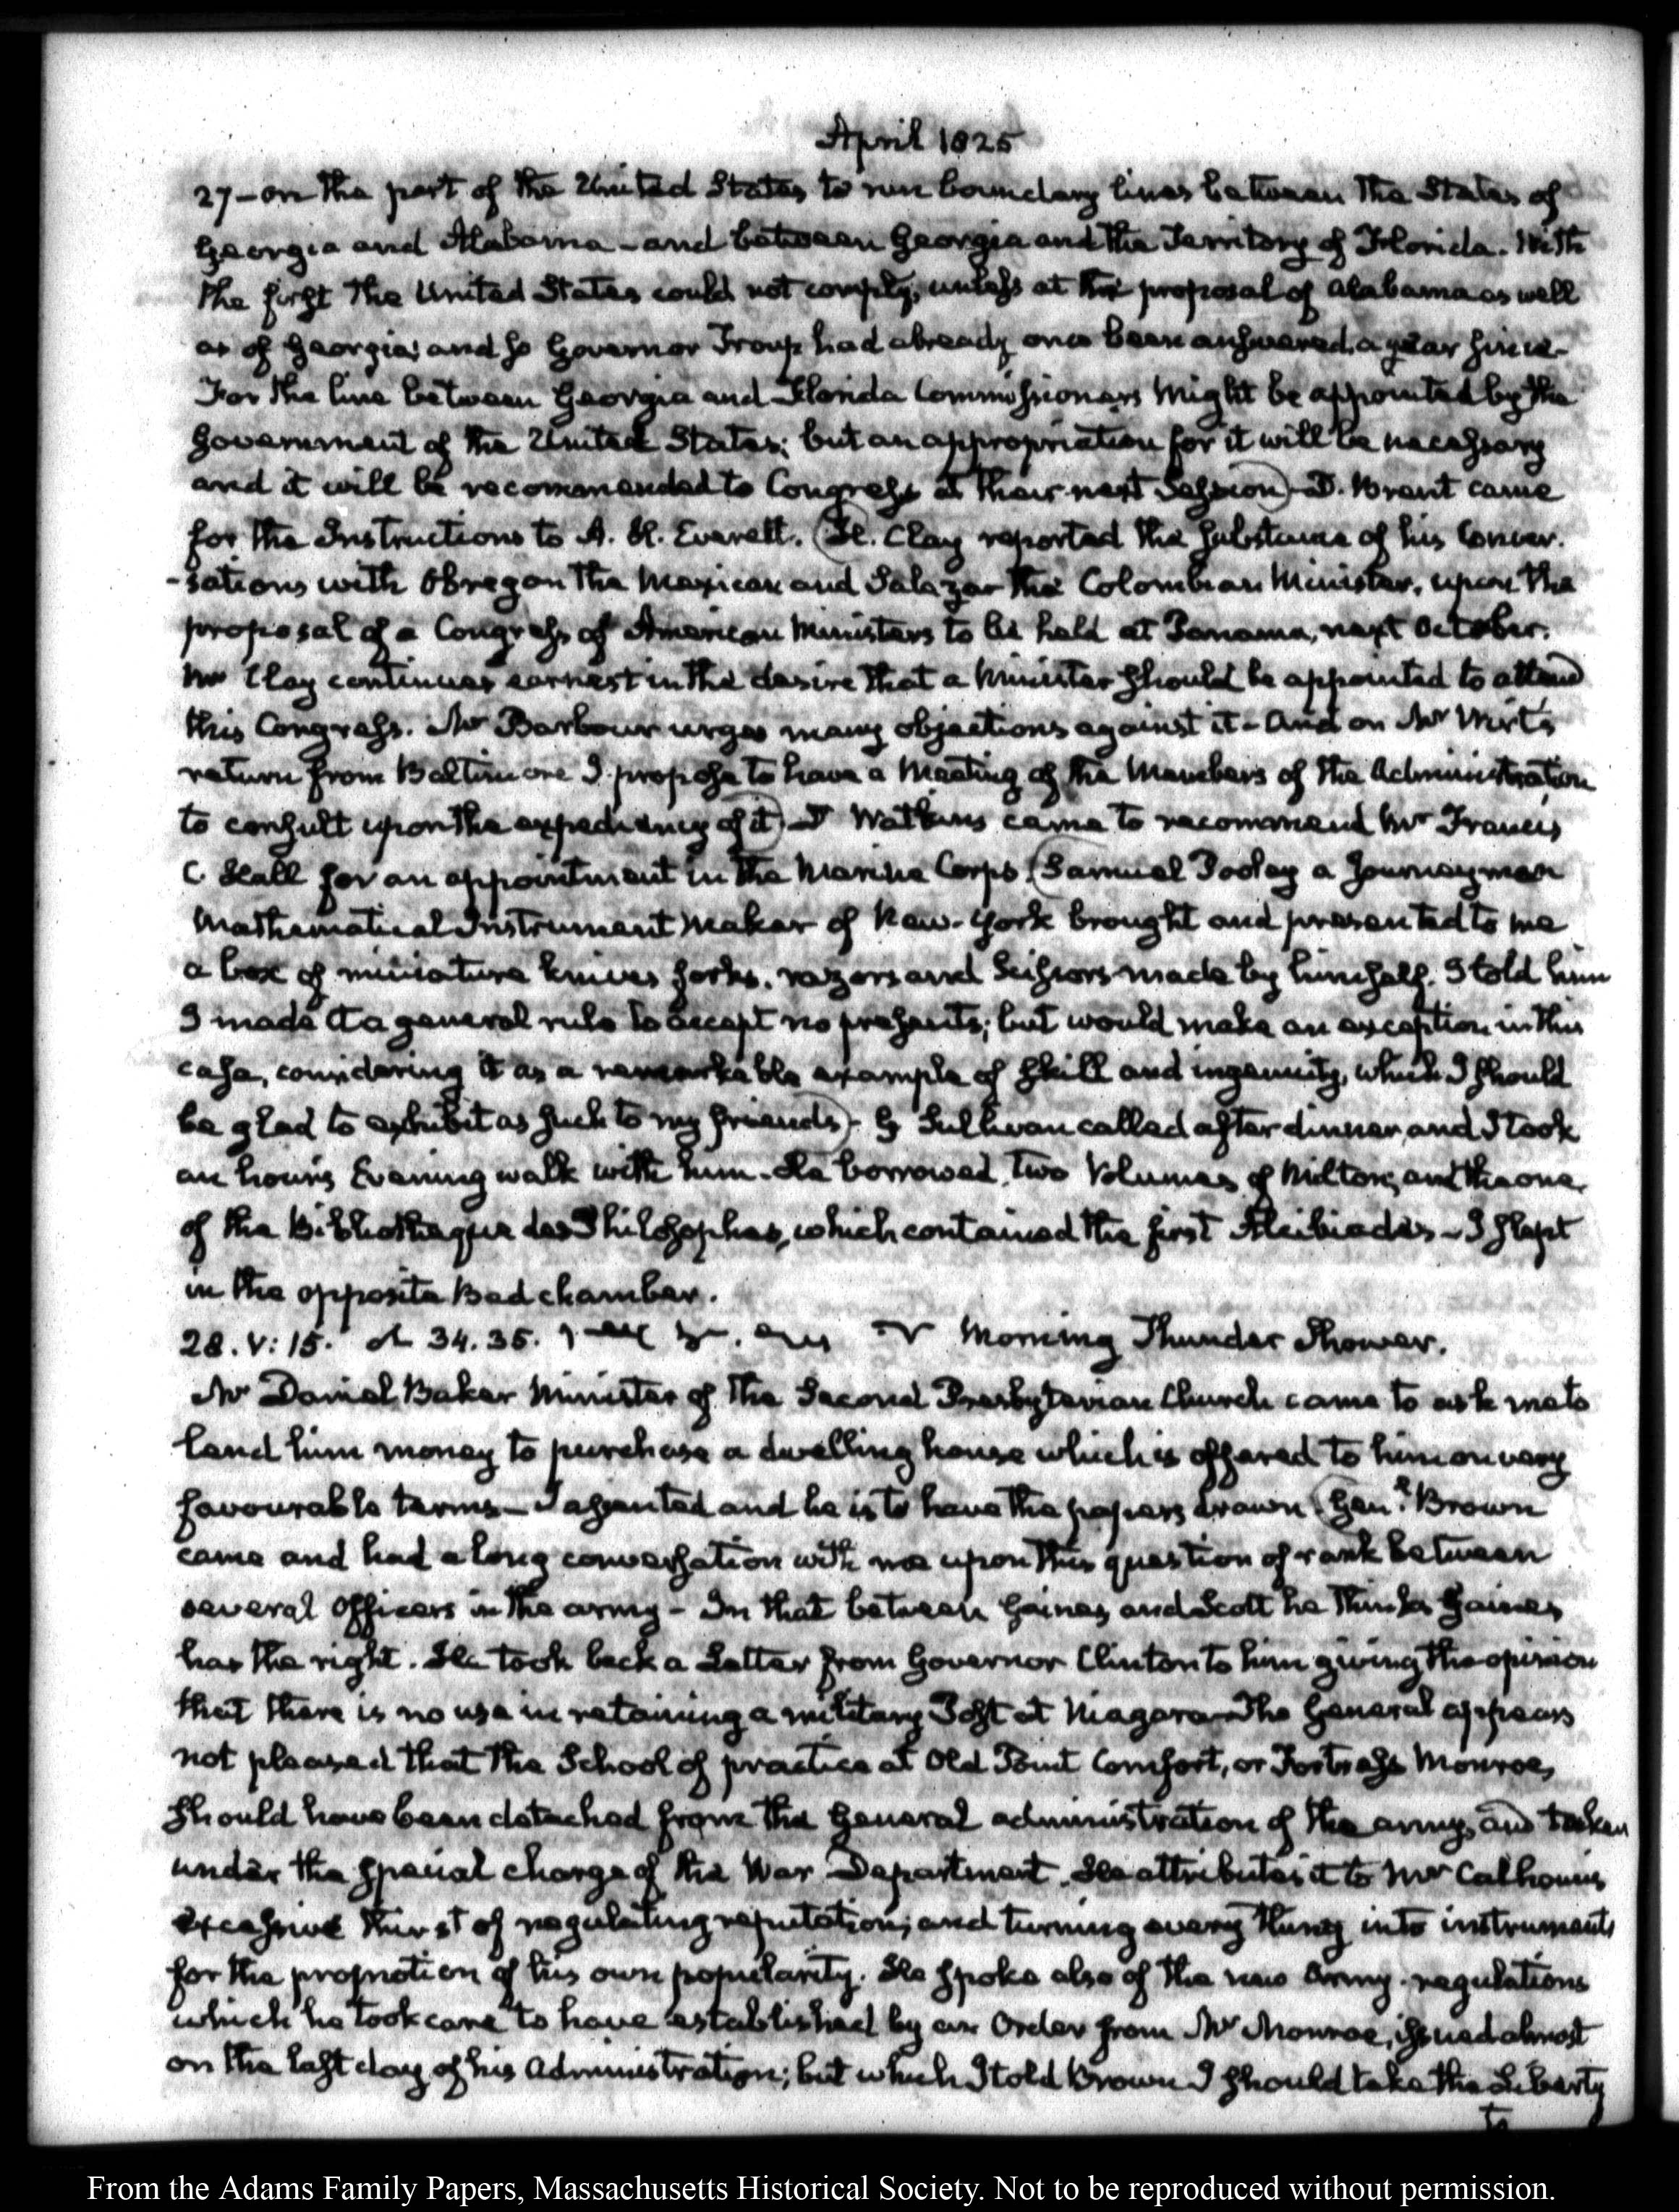 April 1825
27 – on the part of the United States to run boundary lines between the States of
Georgia and Alabama – and between Georgia and the Territory of Florida. With
the first the United States could not comply, unless at the proposal of Alabama as well
as of Georgia; and so Governor Troup had already once been answered, a year since –
For the line between Georgia and Florida Commissioners might be appointed by the
Government of the United States; but an appropriation for it will be necessary
and it will be recommended to Congress at their next Session) – D. Brent came
for the Instructions to A. H. Everett. (H. Clay reported the substance of his conver-
-sations with Obregon the Mexican and Salazar the Colombian Minister, upon the
proposal of a Congress of American Ministers to be held at Panama, next October.
Mr Clay continues earnest in the desire that a Minister should be appointed to attend
this Congress. Mr Barbour urges many objections against it – And on Mr Wirt's
return from Baltimore I propose to have a Meeting of the Members of the Administration
to consult upon the expediency of it) – T Watkins came to recommend Mr Francis
C. Hall for an appointment in the Marine Corps (Samuel Pooley a Journeyman
Mathematical Instrument Maker of New-York brought and presented to me
a box of miniature knives forks, razors and Scissors made by himself. I told him
I made it a general rule to accept no presents; but would make an exception in this
case, considering it as a remarkable example of skill and ingenuity, which I should
be glad to exhibit as such to my friends) – G Sullivan called after dinner, and I took
an hour's Evening walk with him. He borrowed two Volumes of Milton, and the one
of the Bibliotheque des Philosophes, which contained the first Alcibiades – I slept
in the opposite Bed chamber.
28. V: 15. 34. 35. Morning Thunder Shower.
Mr Daniel Baker Minister of the Second Presbyterian Church came to ask me to
lend him money to purchase a dwelling house which is offered to him on very
favourable terms – I assented and he is to have the papers drawn (Genl Brown
came and had a long conversation with me upon this question of rank between
several Officers in the army – In that between Gaines and Scott he thinks Gaines
has the right. He took back a Letter from Governor Clinton to him giving the opinion
that there is no use in retaining a military Post at Niagara – The General appears
not pleased that the School of practice at Old Point Comfort, or Fortress Monroe,
should have been detached from the General administration of the army, and taken
under the special charge of the War Department. He attributes it to Mr Calhoun's
excessive thirst of regulating reputation; and turning every thing into instruments
for the promotion of his own popularity. He spoke also of the new Army regulations
which he took care to have established by an Order from Mr Monroe, issued almost
on the last day of his Administration; but which I told Brown I should take the Liberty
to
From the Adams Family Papers, Massachusetts Historical Society. Not to be reproduced without permission.